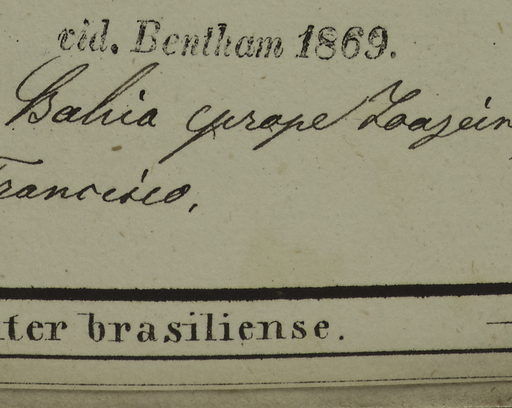 vid. Bentham 1869.
Bahia prope Joazein
Francisco,
iter brasiliense.